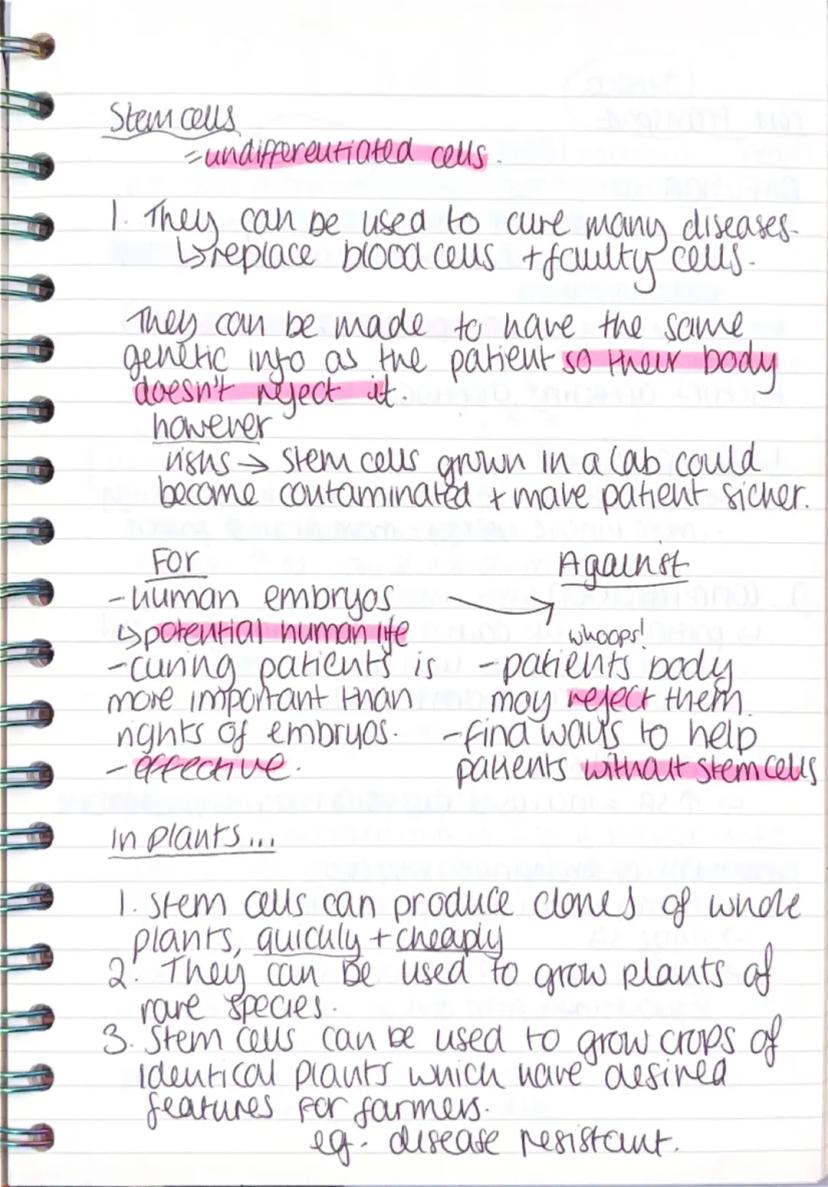 Stem cells
= undifferentiated cells.
1. They can be used to cure many diseases.
↳ replace blood cells + faulty cells.
They can be made to have the same
genetic info as the patient so their body
doesn't reject it.
however
risks → stem cells grown in a lab could
become contaminated + make patient sicker.
For
Against
-human embryos
↳ potential human life
whoops!
-curing patients is
more important than
rights of embryos.
- effective.
-patients body
may reject them.
-find ways to help
patients without stem cells
In plants...
1. Stem cells can produce clones of whole
plants, quickly + cheaply
2. They can be used to grow plants of
rare species.
3. Stem cells can be used to grow crops of
identical plants which have desired
features for farmers.
eg. disease resistant.